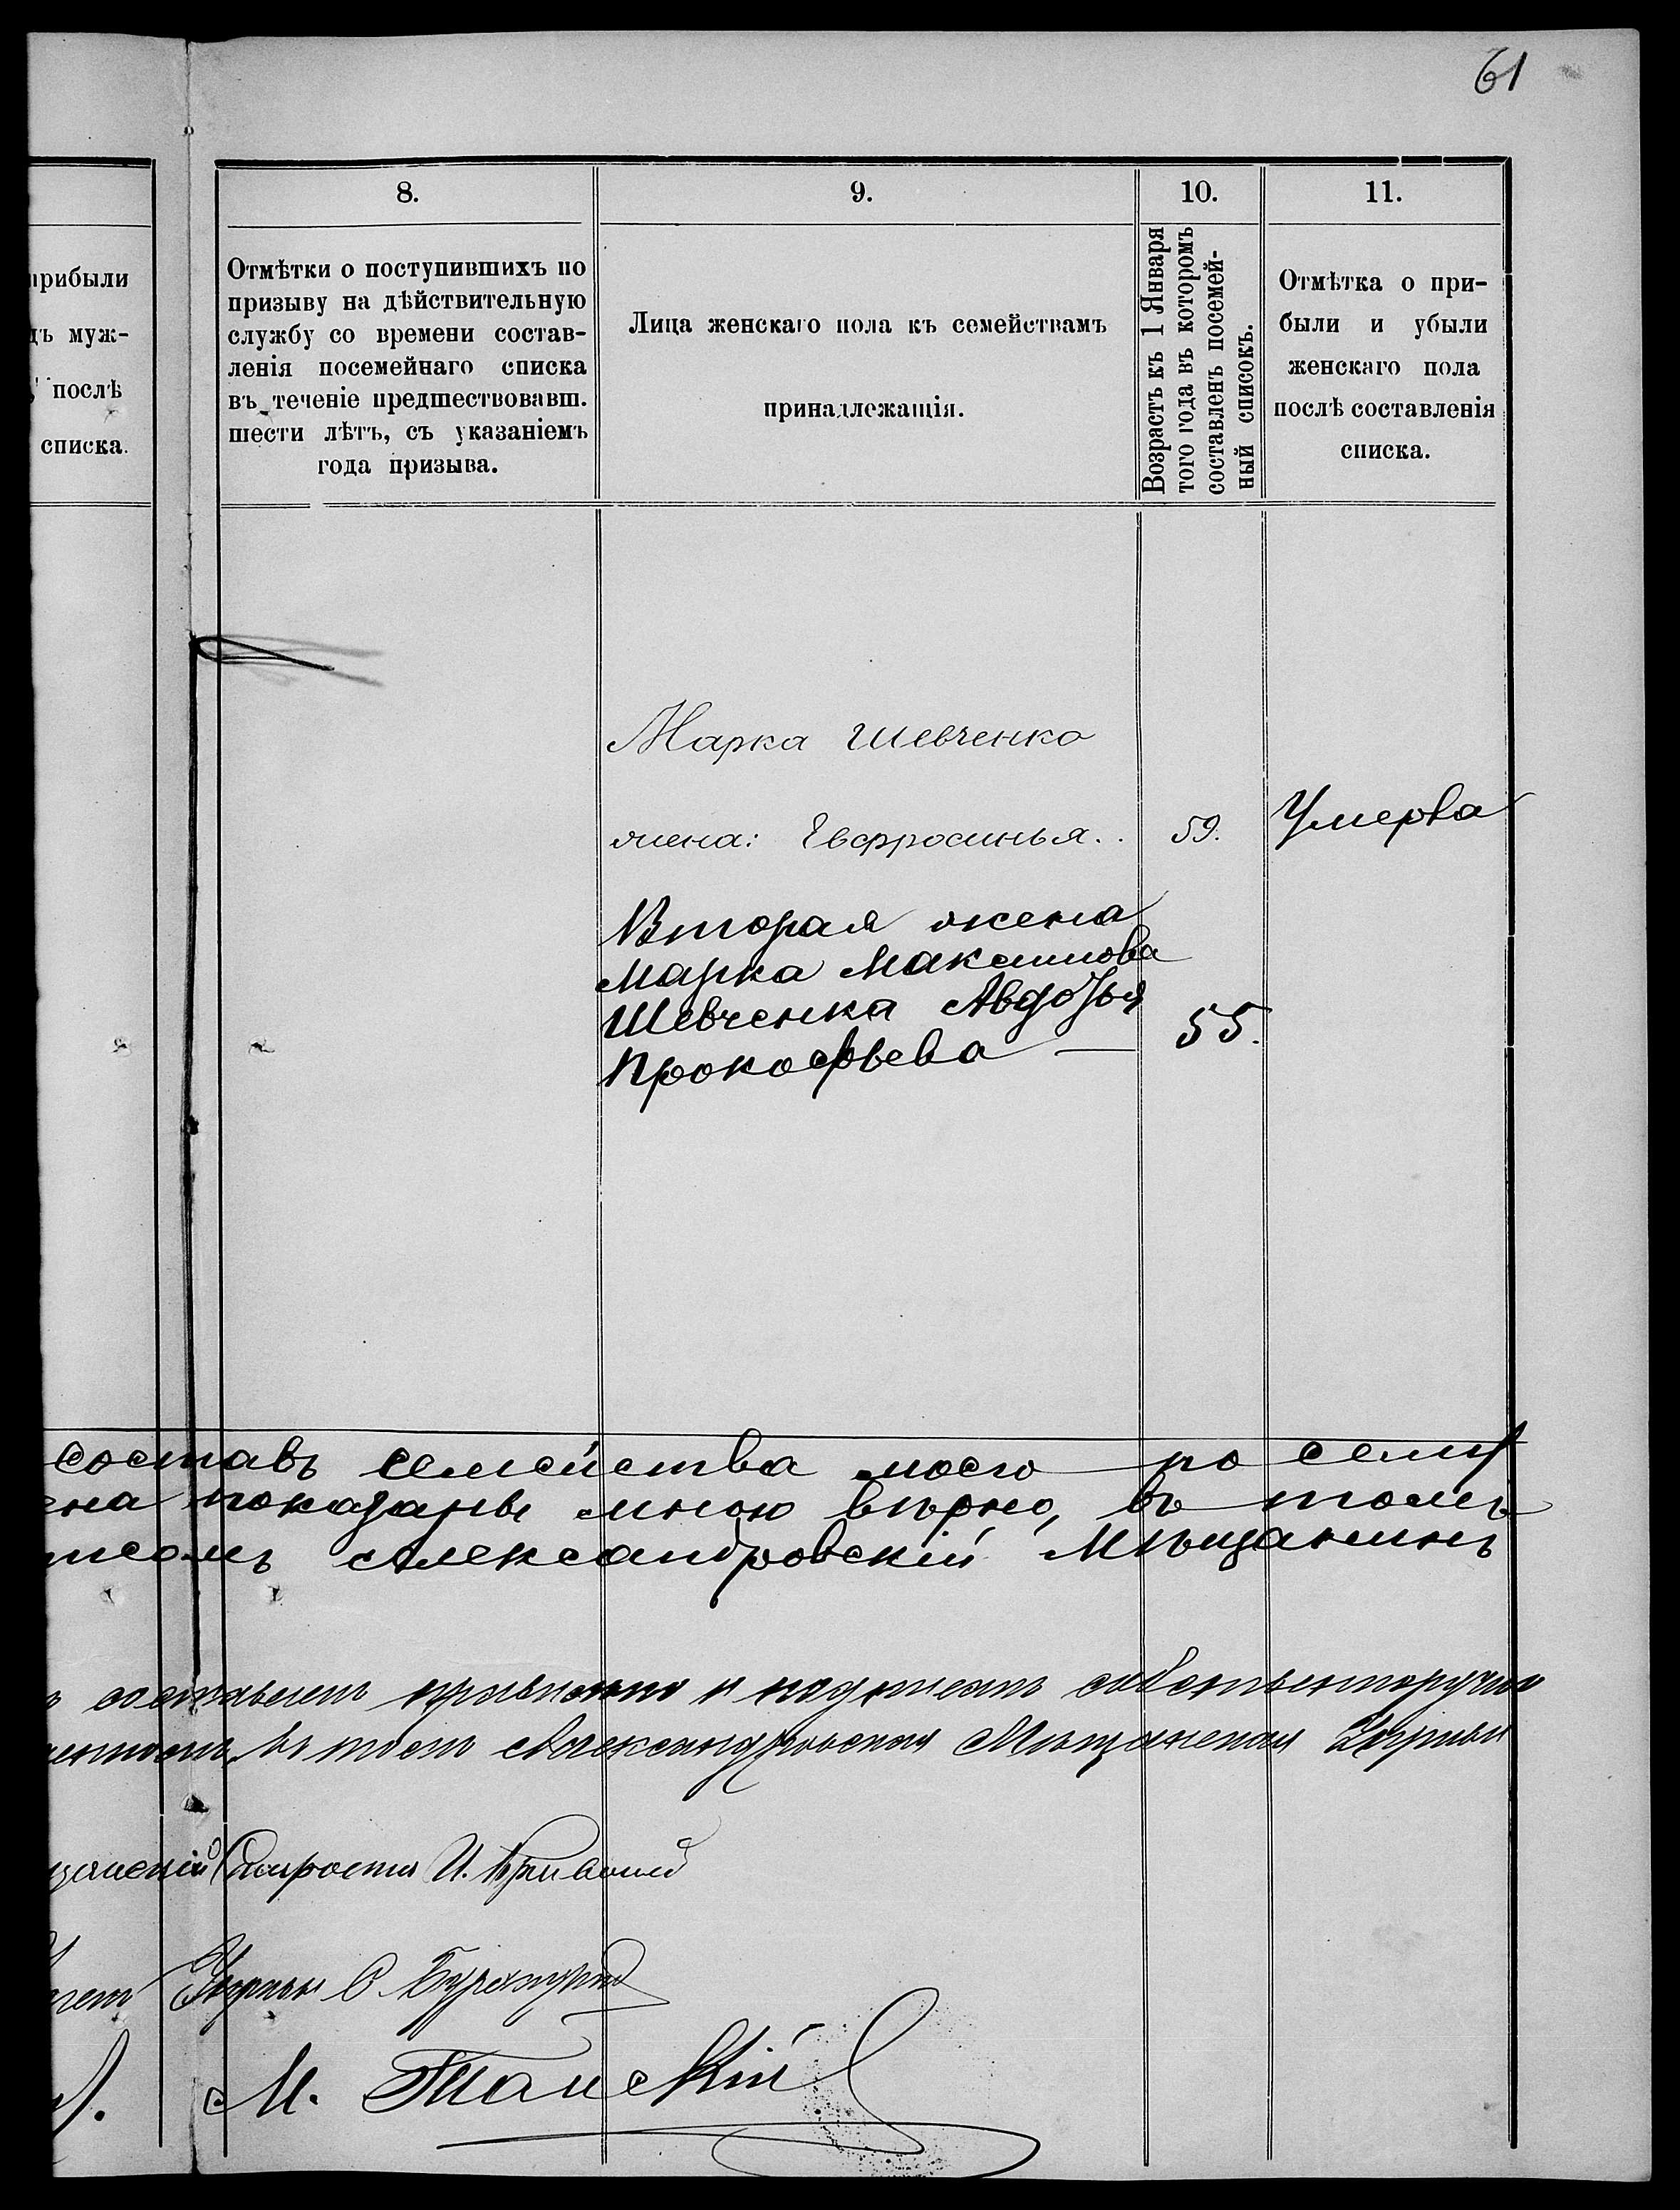 61
8.
9.
10.
11.
прибыли
дъ муж-
послѣ
списка.
Отмѣтки о поступившихъ по
призыву на дѣйствительную
службу со времени состав-
ленія посемейнаго списка
въ теченіе предшествовавш.
шести лѣтъ, съ указаніемъ
года призыва.
Лица женскаго пола къ семействамъ
принадлежащія.
Возрастъ къ 1 Января
того года въ которомъ
составленъ посемей-
ный списокъ.
Отмѣтка о при-
были и убыли
женскаго пола
послѣ составленія
списка.
Марка Шевченко
жена: Евфросинья.. 59. Умерла
Вторая жена
Марка Максимова
Шевченка Авдотья
Прокофьева — 55.
составъ семейства моего по сему
показаны мною вѣрно, въ томъ
Александровскій Мѣщанинъ
составленъ правильно и подписанъ собственноручно
въ томъ Александровская Мѣщанская Управа
Староста И.
Управы
М. Танскій